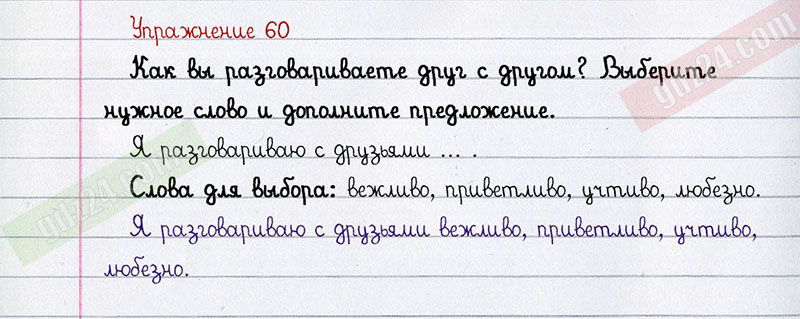 Упражнение 60
Как вы разговариваете друг с другом? Выберите
нужное слово и дополните предложение.
Я разговариваю с друзьями ... .
Слова для выбора: вежливо, приветливо, учтиво, любезно.
Я разговариваю с друзьями вежливо, приветливо, учтиво,
любезно.
gdz24.com
gdz24.com